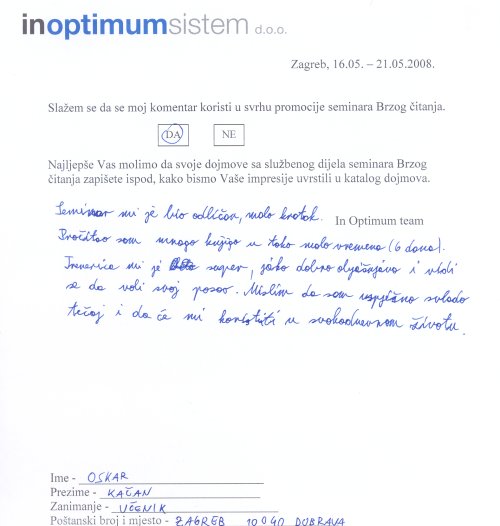 inoptimumsistem d.o.o.
Zagreb, 16.05. – 21.05.2008.
Slažem se da se moj komentar koristi u svrhu promocije seminara Brzog čitanja.
DA NE
Najljepše Vas molimo da svoje dojmove sa službenog dijela seminara Brzog
čitanja zapišete ispod, kako bismo Vaše impresije uvrstili u katalog dojmova.
Seminar mi je bio odličan, malo kratak.
In Optimum team
Pročitao som mnogo knjiga u tako malo vremena (6 dana).
Trenerica mi je super, jako dobro objašnjava i vidi
se da voli svoj posao. Mislim da sam uspješno svlado
tečaj i da će mi koristiti u svakodnevnom životu.
Ime - OSKAR
Prezime - KAČAN
Zanimanje - UČENIK
Poštanski broj i mjesto - ZAGREB 10040 DUBRAVA